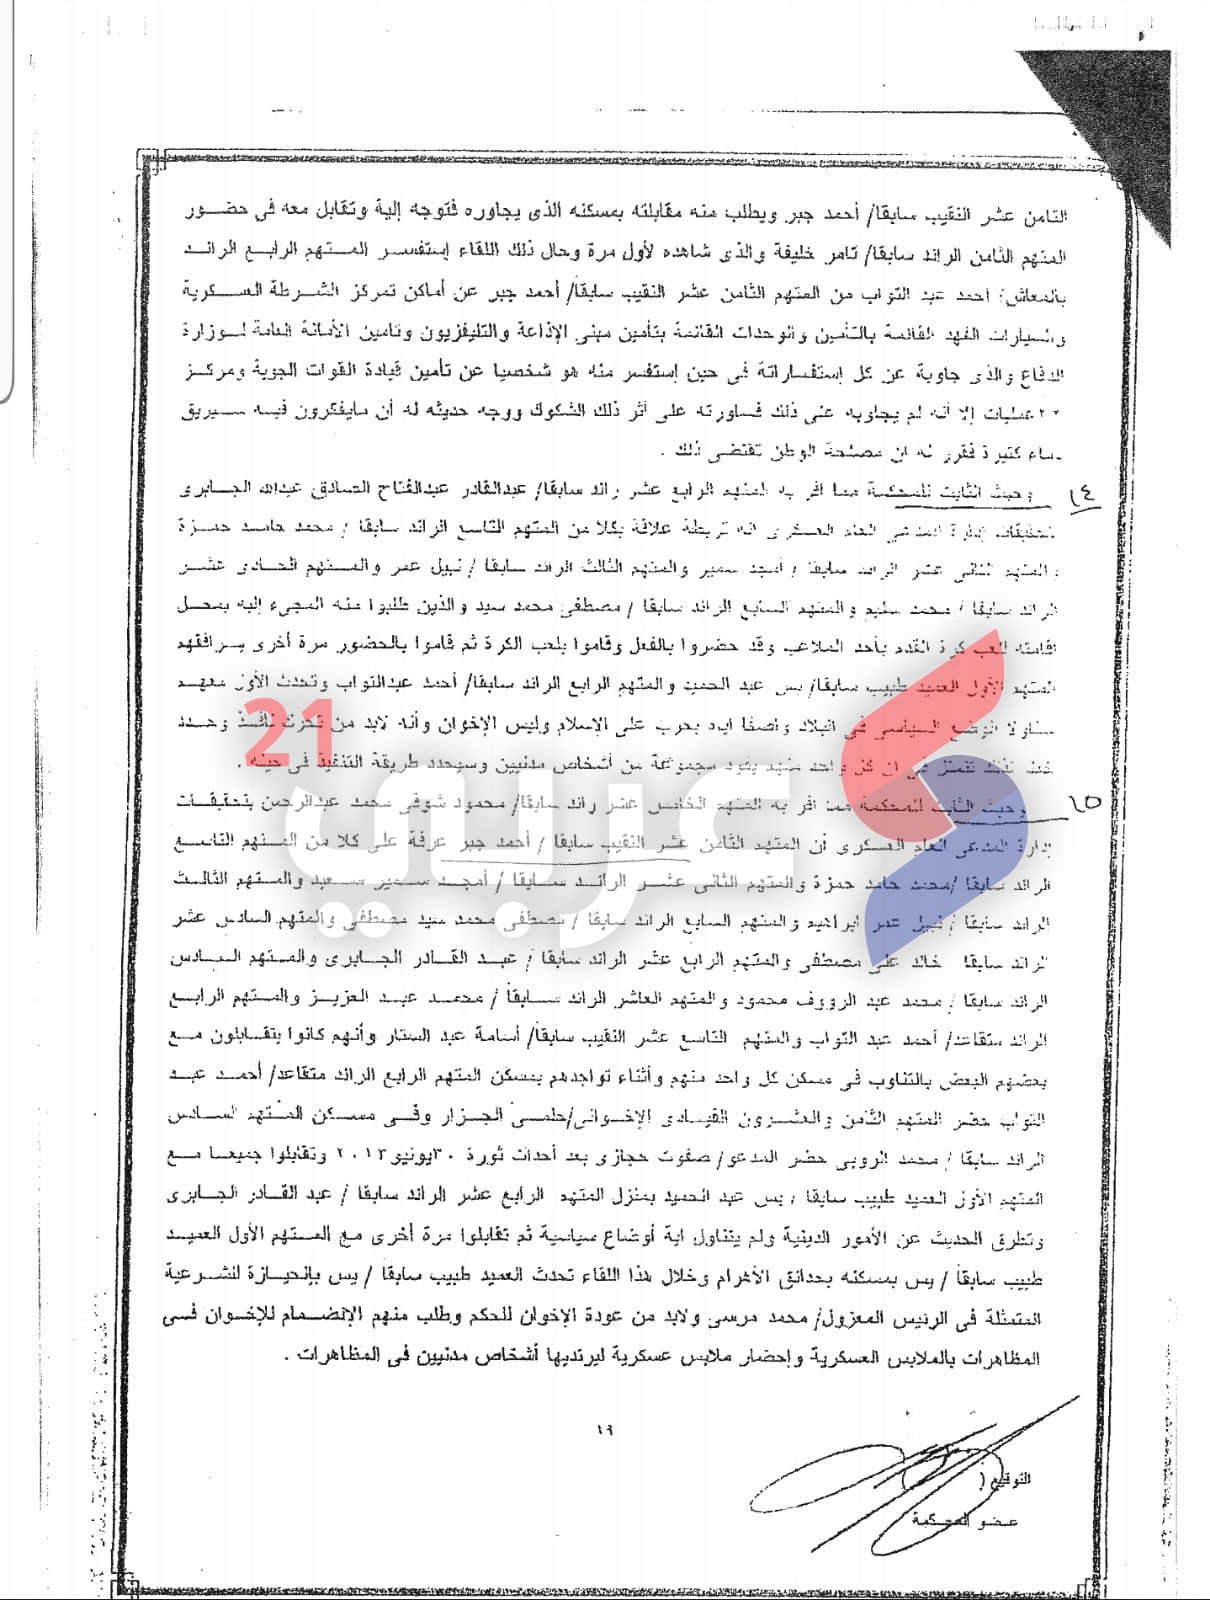 الثامن عشر النقيب سابقا/ أحمد جبر ويطلب منه مقابلته بمسكنه الذى يجاوره فتوجه إلية وتقابل معه فى حضور
المتهم الثامن الرائد سابقا/ تامر خليفة والذى شاهده لأول مرة وحال ذلك اللقاء إستفسر المتهم الرابع الرائد
بالمعاش/ أحمد عبد التواب من المتهم الثامن عشر النقيب سابقا/ أحمد جبر عن أماكن تمركز الشرطة العسكرية
والسيارات الفهد القائمة بالتأمين والوحدات القائمة بتأمين مبنى الإذاعة والتليفزيون وتامين الأمانة العامة لوزارة
الدفاع والذى جاوبة عن كل إستفساراتة فى حين إستفسر منه هو شخصيا عن تأمين قيادة القوات الجوية ومركز
عمليات إلا أنه لم يجاوبه على ذلك فساورته على أثر ذلك الشكوك ووجه حديثه له أن مايفكرون فيه سيريق
دماء كثيرة فقرر له ان مصلحة الوطن تقتضى ذلك .
١٤ وحيث الثابت للمحكمة مما اقر به المتهم الرابع عشر رائد سابقا/ عبدالقادر عبدالفتاح الصادق عبدالله الجابرى
بتحقيقات إدارة المدعى العام العسكرى انه تربطة علاقة بكلا من المتهم التاسع الرائد سابقا / محمد حامد حمزة
والمتهم الثانى عشر الرائد سابقا / أمجد سمير والمتهم الثالث الرائد سابقا / نبيل عمر والمتهم الحادى عشر
الرائد سابقا / محمد سليم والمتهم السابع الرائد سابقا / مصطفى محمد سيد والذين طلبوا منه المجىء إليه بمحل
إقامته للعب كرة القدم بأحد الملاعب وقد حضروا بالفعل وقاموا بلعب الكرة ثم قاموا بالحضور مرة أخرى يرافقهم
المتهم الأول العميد طبيب سابقا/ يس عبد الحميد والمتهم الرابع الرائد سابقا/ أحمد عبدالتواب وتحدث الأول معهم
متناولا الوضع السياسى فى البلاد واصفا ايه بحرب على الإسلام وليس الإخوان وأنه لابد من تحرك نافذ وحدد
خط تتمثل فى ان كل واحد منهم يقود مجموعة من أشخاص مدنيين وسيحدد طريقة التنفيذ فى حينه .
١٥ وحيث الثابت للمحكمة مما اقر به المتهم الخامس عشر رائد سابقا/ محمود شوقى محمد عبدالرحمن بتحقيقات
إدارة المدعى العام العسكرى أن المتهم الثامن عشر النقيب سابقا / أحمد جبر عرفة على كلا من المتهم التاسع
الرائد سابقا /محمد حامد حمزة والمتهم الثانى عشر الرائد سابقا / أمجد سمير سعيد والمتهم الثالث
الرائد سابقا / نبيل عمر ابراهيم والمتهم السابع الرائد سابقا / مصطفى محمد سيد مصطفى والمتهم السادس عشر
الرائد سابقا خالد على مصطفى والمتهم الرابع عشر الرائد سابقا / عبد القادر الجابرى والمتهم السادس
الرائد سابقا / محمد عبد الرووف محمود والمتهم العاشر الرائد سابقا / محمد عبد العزيز والمتهم الرابع
الرائد متقاعد/ أحمد عبد التواب والمتهم التاسع عشر النقيب سابقا/ أسامة عبد الستار وأنهم كانوا يتقابلون مع
بعضهم البعض بالتناوب فى مسكن كل واحد منهم وأثناء تواجدهم بمسكن المتهم الرابع الرائد متقاعد/ أحمد عبد
التواب حضر المتهم الثامن والعشرون القيادى الإخوانى/حلمى الجزار وفى مسكن المتهم السادس
الرائد سابقا / محمد الروبى حضر المدعو/ صفوت حجازى بعد أحداث ثورة ٣٠يونيو٢٠١٣ وتقابلوا جميعا مع
المتهم الأول العميد طبيب سابقا / يس عبد الحميد بمنزل المتهم الرابع عشر الرائد سابقا / عبد القادر الجابرى
وتطرق الحديث عن الأمور الدينية ولم يتناول اية أوضاع سياسية ثم تقابلوا مرة أخرى مع المتهم الأول العميد
طبيب سابقا / يس بمسكنه بحدائق الأهرام وخلال هذا اللقاء تحدث العميد طبيب سابقا / يس بإنحيازة للشرعية
المتمثلة فى الرئيس المعزول/ محمد مرسى ولابد من عودة الإخوان للحكم وطلب منهم الإنضمام للإخوان فى
المظاهرات بالملابس العسكرية وإحضار ملابس عسكرية ليرتديها أشخاص مدنيين فى المظاهرات .
١٩
التوقيع (
عضو المحكمة
عربي 21